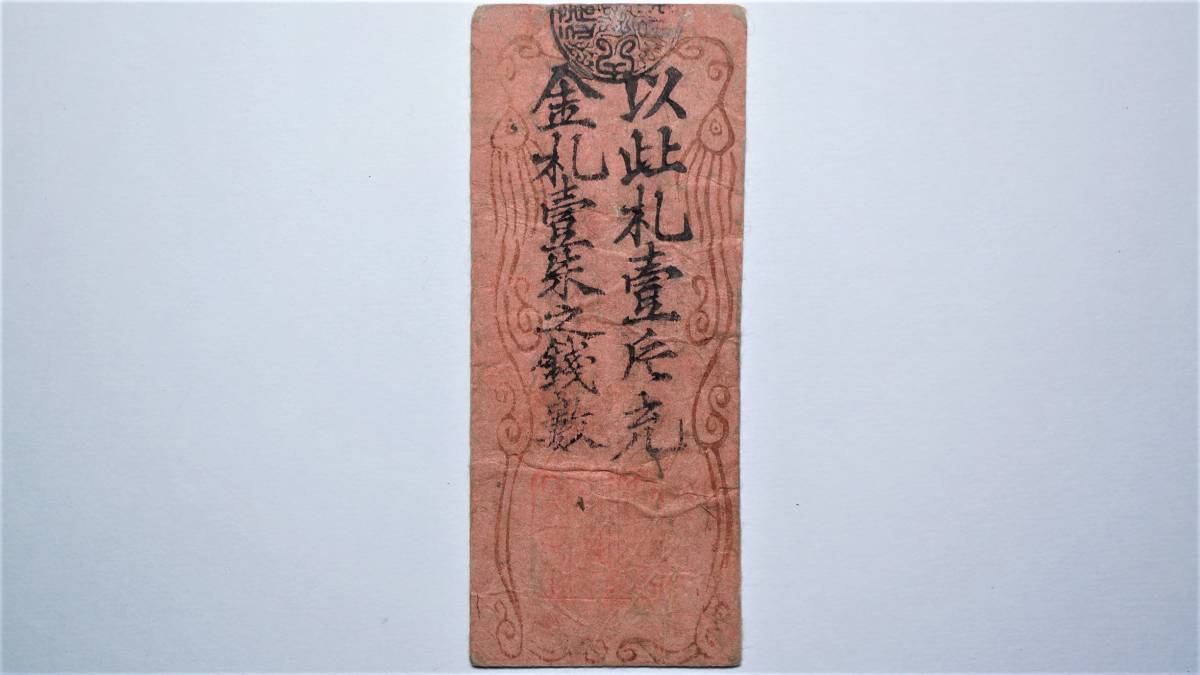 以此札壹片充
金札壹朱之錢數